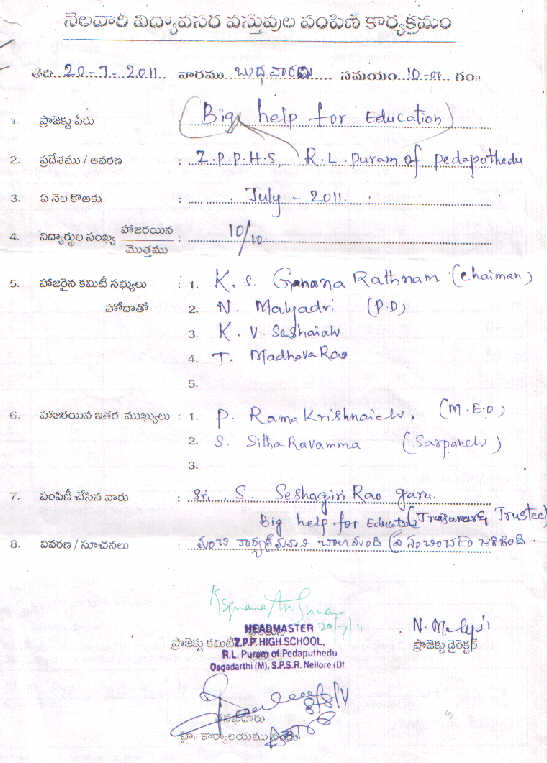 నెలవారీ విద్యావసర వస్తువుల పంపిణి కార్యక్రమం
తేది. 20-7-2011. వారము బుధవారము సమయం 10-00 గం॥
1. ప్రాజెక్టు పేరు (Big help for Education)
2. ప్రదేశము / ఆవరణ : Z.P.P.H.S, R.L. Puram of pedapothedu
3. ఏ నెల కొఱకు : July - 2011.
4. విద్యార్థుల సంఖ్య హాజరయిన / మొత్తము : 10/10
5. హాజరైన కమిటీ సభ్యులు : 1. K. S. Gnana Rathnam (Chaiman)
హోదాతో 2. N. Malyadri (P.D)
3. K. V. Seshaiah
4. T. Madhava Rao
5.
6. హాజరయిన ఇతర ముఖ్యులు : 1. P. Rama Krishnaiah. (M.E.O)
2. S. Sitha Ravamma (Sarpanch)
3.
7. పంపిణీ చేసిన వారు : Sri. S. Seshagiri Rao garu.
Big help for Education (Treasurer & Trustee)
8. వివరణ / సూచనలు :
HEADMASTER 20/7/11
ప్రాజెక్టు కమిటీ Z.P.P. HIGH SCHOOL,
R.L. Puram of Pedaputhedu
Dagadarthi (M), S.P.S.R. Nellore (Dt
N. Malyadri
ప్రాజెక్టు డైరెక్టర్